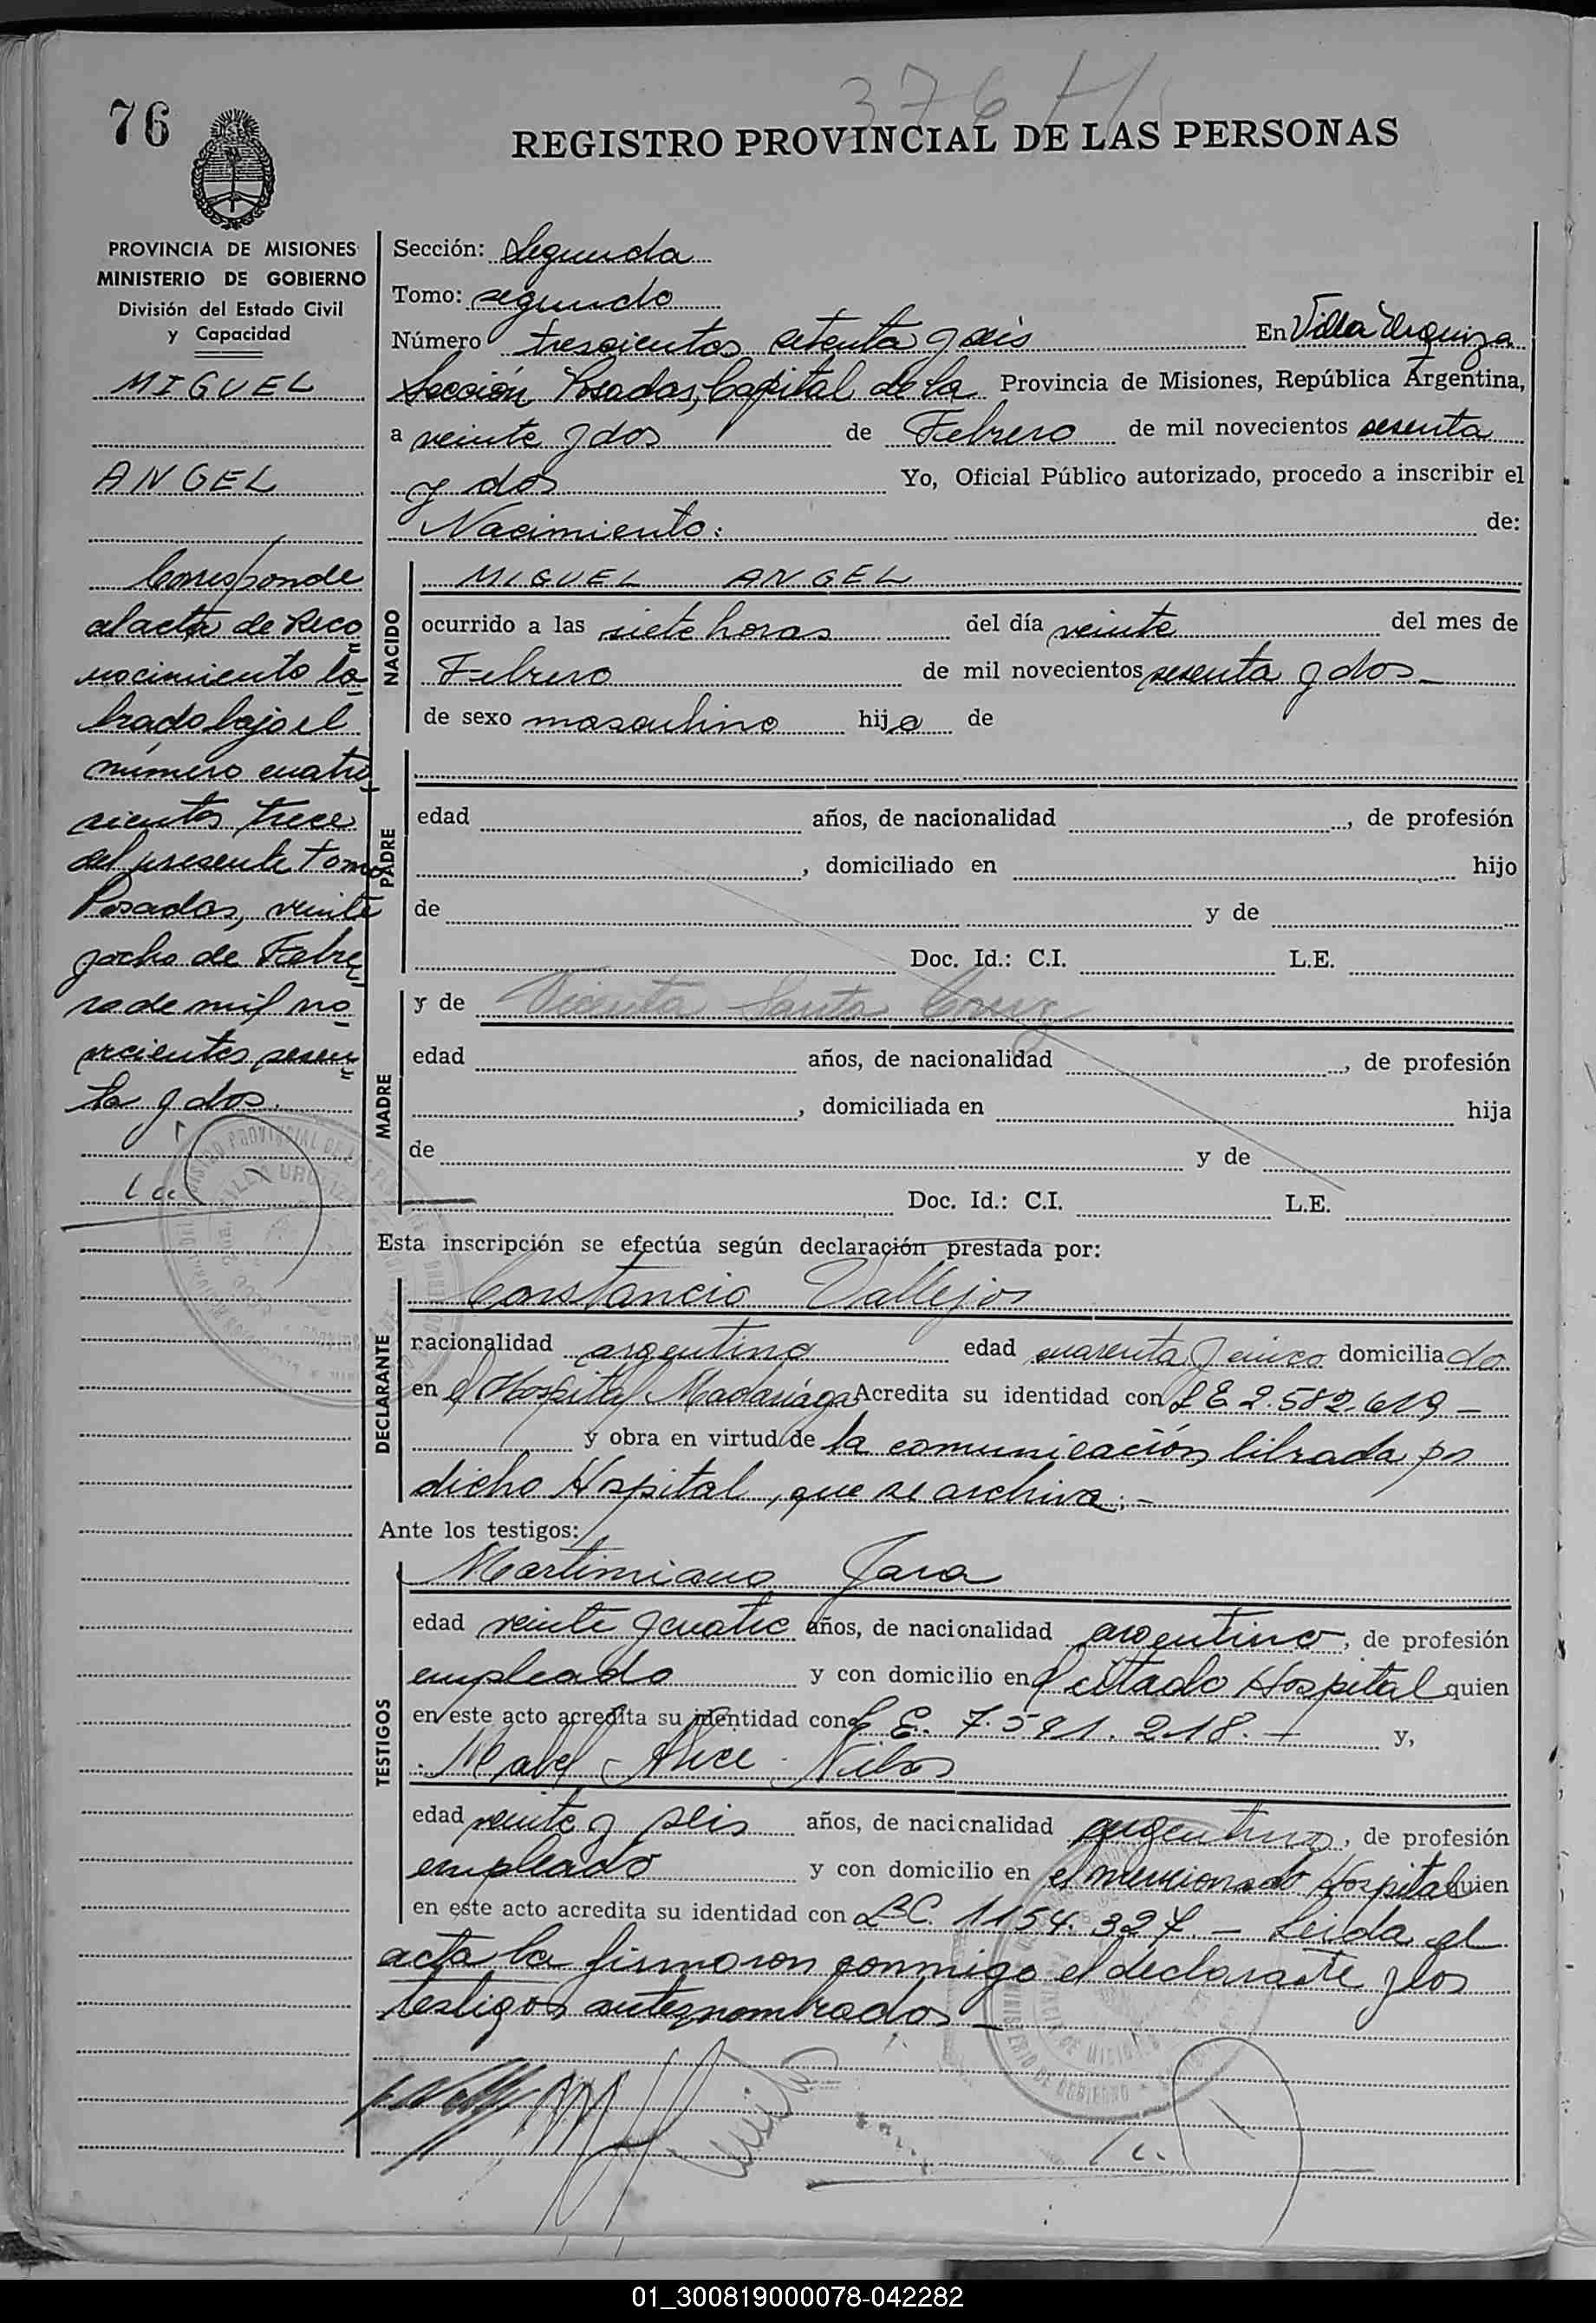 376
76
REGISTRO PROVINCIAL DE LAS PERSONAS
PROVINCIA DE MISIONES
MINISTERIO DE GOBIERNO
División del Estado Civil
y Capacidad
MIGUEL
ANGEL
Corresponde
al acta de Reco
nocimiento la
brado bajo el
número cuatro
cientos trece
del presente tomo
Posadas, veinte
y ocho de Febre
ro de mil no
vecientos sesen
ta y dos.
Sección: Segunda
Tomo: segundo
Número trescientos setenta y seis En Villa Urquiza
Sección Posadas, Capital de la Provincia de Misiones, República Argentina,
a veinte y dos de Febrero de mil novecientos sesenta
y dos Yo, Oficial Público autorizado, procedo a inscribir el
Nacimiento: de:
NACIDO
MIGUEL ANGEL
ocurrido a las siete horas del día veinte del mes de
Febrero de mil novecientos sesenta y dos
de sexo masculino hijo de
PADRE
edad años, de nacionalidad , de profesión
, domiciliado en hijo
de y de
Doc. Id.: C.I. L.E.
MADRE
y de Vicenta Santa Cruz
edad años, de nacionalidad , de profesión
, domiciliada en hija
de y de
Doc. Id.: C.I. L.E.
Esta inscripción se efectúa según declaración prestada por:
DECLARANTE
Constancio Vallejos
nacionalidad argentino edad cuarenta y cinco domiciliado
en el Hospital Madariaga Acredita su identidad con L E 2.582.619 -
y obra en virtud de la comunicación librada por
dicho Hospital, que se archiva.-
Ante los testigos:
TESTIGOS
Martimiano Jara
edad veinte y cuatro años, de nacionalidad argentino, de profesión
empleado y con domicilio en el citado Hospital quien
en este acto acredita su identidad con L E. 7.591.218.- y,
Mabel Alice
edad veinte y seis años, de nacionalidad argentina, de profesión
empleado y con domicilio en el mencionado Hospital quien
en este acto acredita su identidad con L C. 1154.327.- Leida el
acta la firmaron conmigo el declarante y los
testigos antesnombrados -
01_300819000078-042282